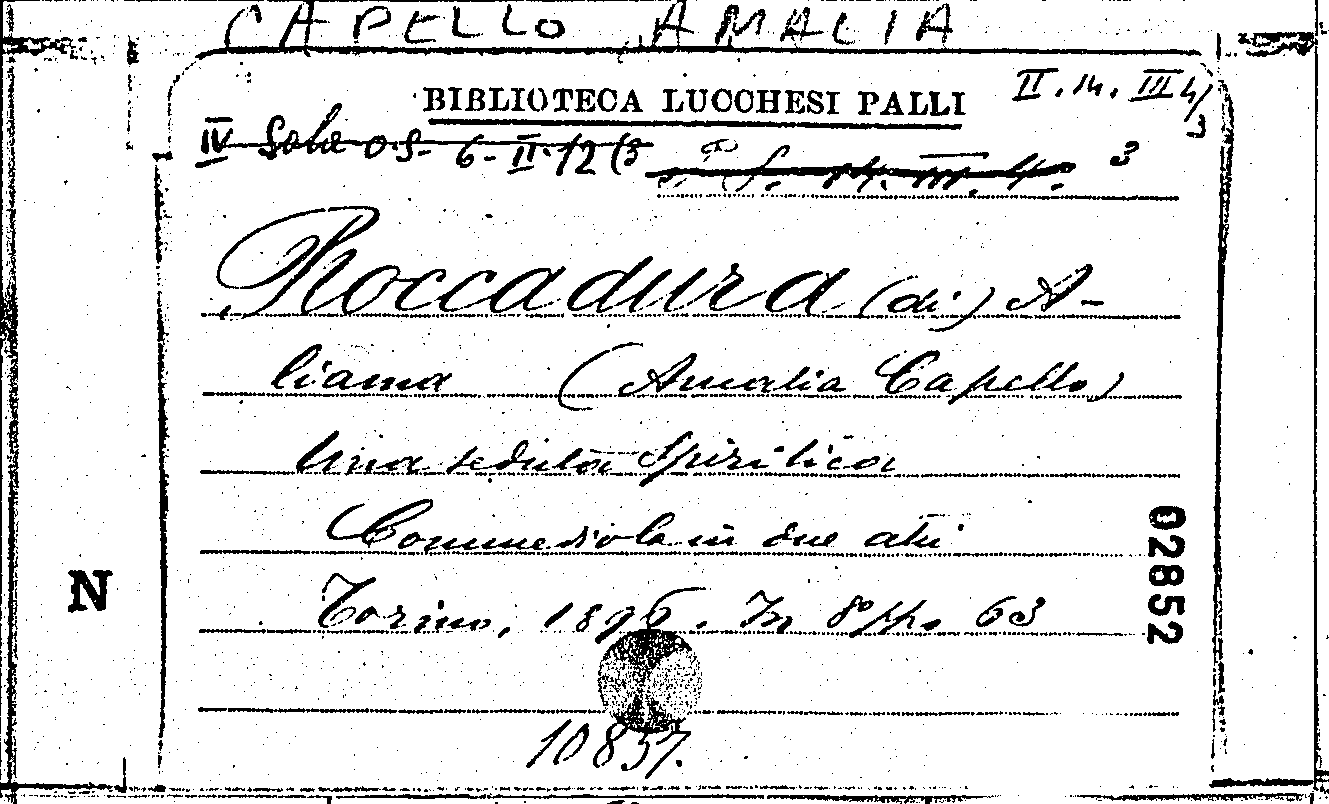 CAPELLO AMALIA
BIBLIOTECA LUCCHESI PALLI
II. 14. III 4/3
IV Sala O.S- 6-II-12(3
3
Roccadura (di) A-
liama (Amalia Capello)
Una seduta Spiritica
Commediola in due atti
Torino, 1896. In 8° pp. 63
02852
N
10857.